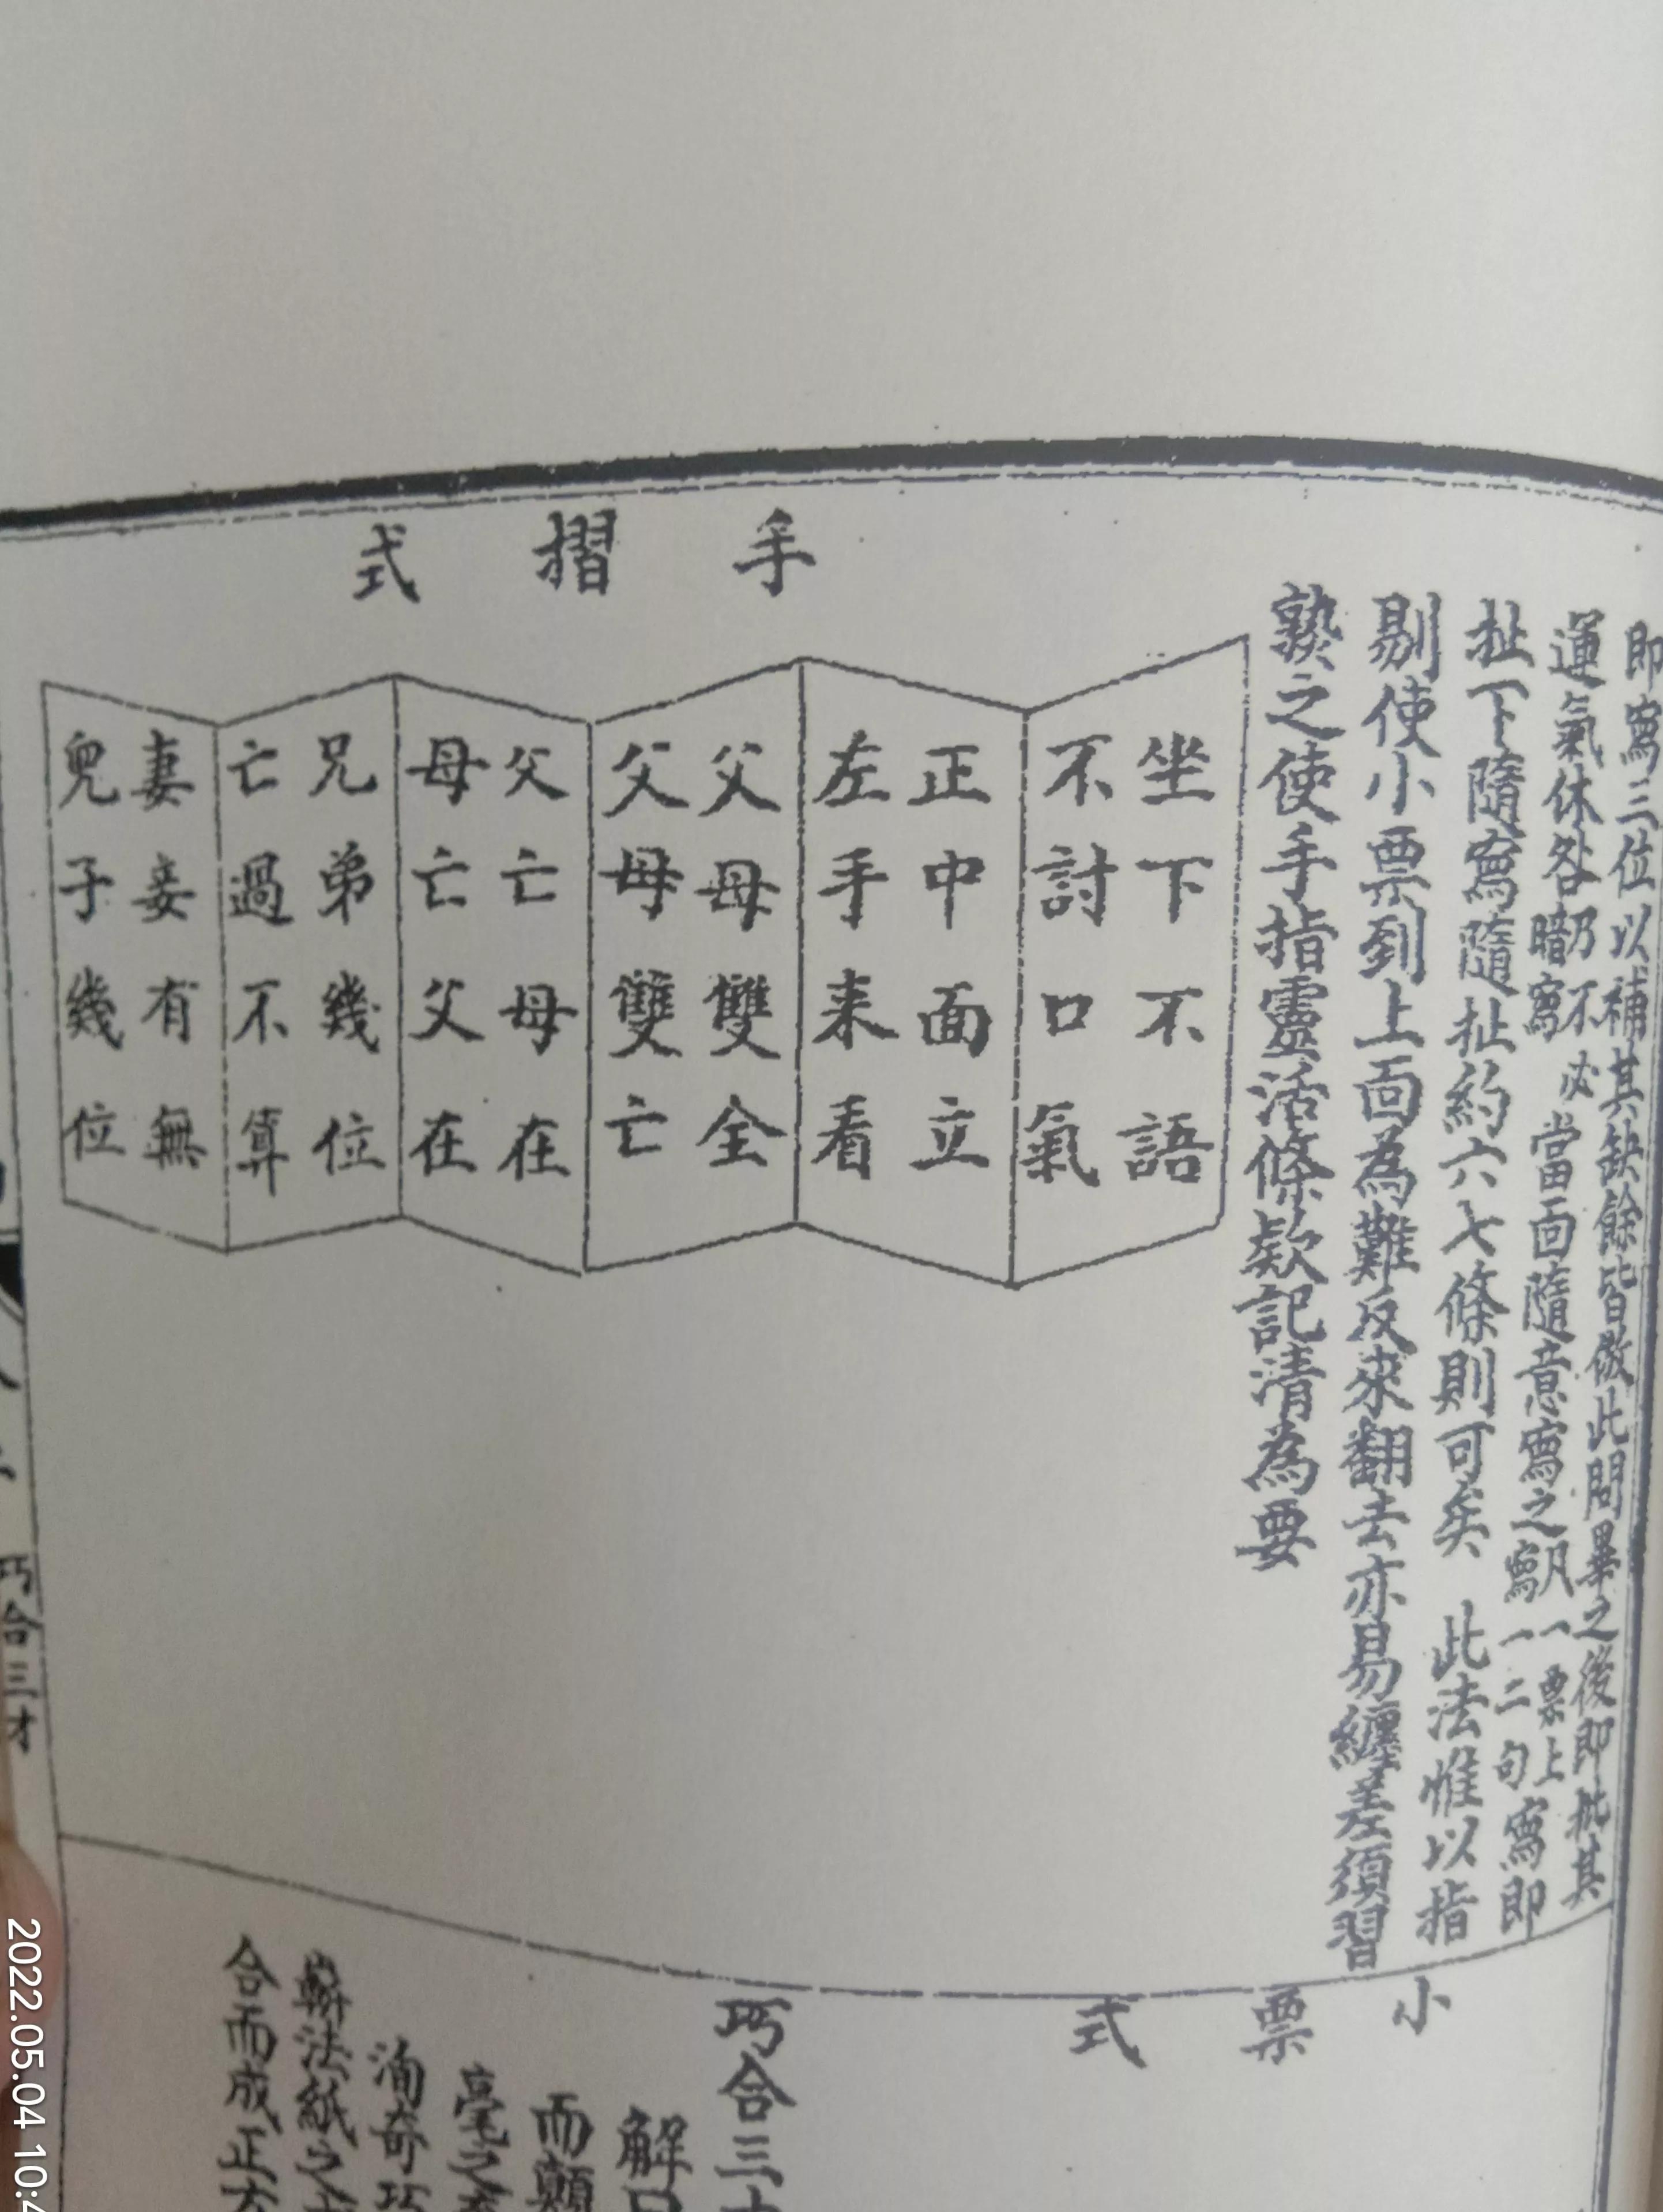 即寫三位以補其缺餘皆倣此問畢之後即批其
運氣休咎乃不必暗寫當面隨意寫之凡一票上寫一二句寫即
扯下隨寫隨扯約六七條則可矣 此法惟以指
剔使小票到上面為難反來翻去亦易纏差須習
熟之使手指靈活條款記清為要
手摺式
坐下不語
不討口氣
正中面立
左手来看
父母雙全
父母雙亡
父亡母在
母亡父在
兄弟幾位
亡過不算
妻妾有無
兒子幾位
小票式
巧合三
解
而顛
毫之
洵奇巧
法紙之
合而成正方
巧合三才
2022.05.04 10:4